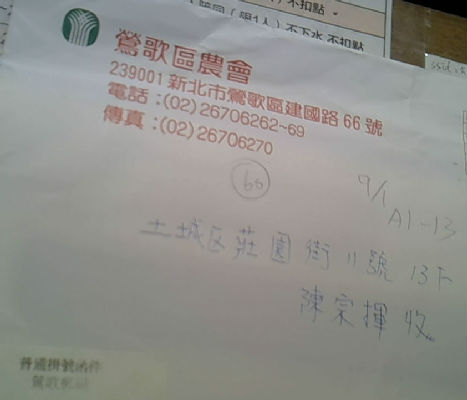 陪同(限1人)不下水 不扣點
鶯歌區農會
239001 新北市鶯歌區建國路 66 號
電話:(02)26706262~69
傳真:(02)26706270
66
9/1
A1-13
土城区莊園街11號13F
陳宗揮 收
普通掛號函件